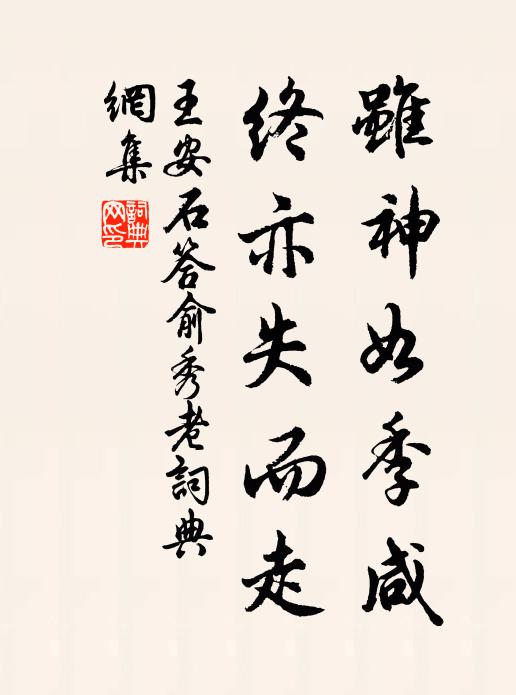 雖神如季咸
終亦失而走
王安石答俞秀老詞典
網集
詞典網印